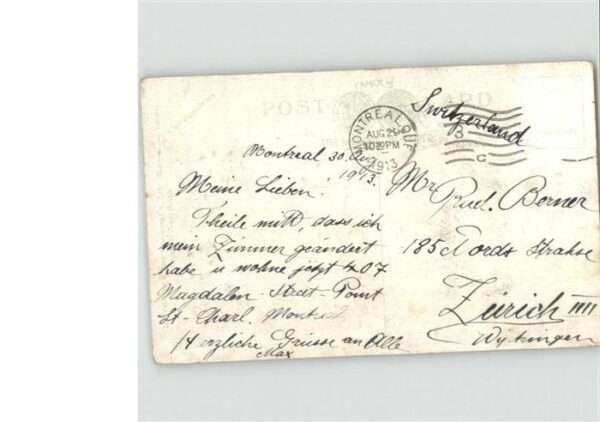 POST CARD
MONTREAL, QUE.
AUG 29
10 PM
1913
Switzerland
Montreal 30. Aug
1913.
Meine Lieben!
Theile mitt, dass ich
mein Zimmer geändert
habe u wohne jetzt 407
Magdalen Street-Point
St-Charl. Montreal
Herzliche Grüsse an Alle
Max
Mr Rud. Berner
185 Strahse
Zürich IIII